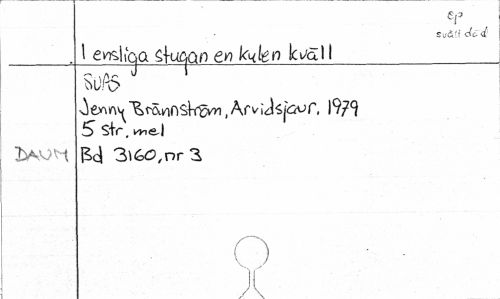 ep
svält död
I ensliga stugan en kulen kväll
SVAS
Jenny Brännström, Arvidsjaur. 1979
5 str. mel
DAUM Bd 3160, nr 3